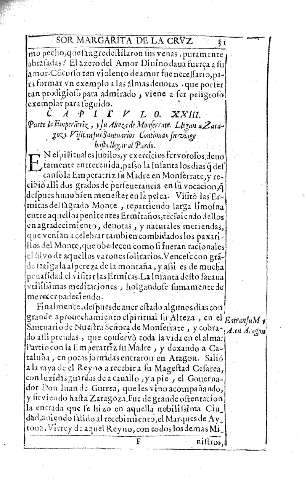 SOR MARGARITA DE LA CRVZ. 81
mo pecho, que sangre destilaron sus venas, puramente
abrasadas! El azero del Amor Divino dava fuerça a su
amor. Cõcurso tan violento de amor fue necessario, pa-
ra formar vn exemplo a las almas devotas, que por ser
tan prodigioso para admirado, viene a ser peligroso
exemplar para seguido.
CAPITVLO. XXIII.
Parte la Emperatriz, y su Alteza de Monserrate. Llegan a Zara-
goza Visitan sus Santuarios. Continuan su viage
hasta llegar al Pardo.
EN espirituales jubilos, y exercicios fervorosos, deuo-
tamente entretenida, passò la Infanta los dias que
descansò la Emperatriz su Madre en Monserrate, y re-
cibiò alli dos grados de perseuerancia en su vocacion, q̃
despues huuo bien menester en la pelea. Visitò las Er-
mitas del sagrado Monte, repartiendo larga limosna
entre aquellos penitentes Ermitaños, recibiendo dellos
en agradecimiento, deuotas, y naturales meriendas,
que venian a celebrar tambien combidados los paxari-
llos del Monte, que obedecen como si fueran racionales
el silvo de aquellos varones solitarios. Vencese con grã-
de fatiga la aspereza de la montaña, y assi es de mucha
penalidad el visitar las Ermitas. La Infanta deste facaua
utilissimas meditaciones, holgandose sumamente de
merecer padeciendo.
Finalmente, despues de auer estado algunos dias con
grande aprouechamiento espiritual su Alteza, en el
Santuario de Nuestra Señora de Monserrate, y cobra-
do alli prendas, que conseruò toda la vida en el alma:
Partiò con la Emperatriz su Madre, y dexando a Ca-
taluña, en pocas jornadas entraron en Aragon. Saliò
a la raya de el Reyno a recebir a su Magestad Cesarea,
con luzidas guardas de a cauallo, y a pie, el Governa-
dor Don Juan de Gurrea, que les vino acompañando,
y siruiendo hasta Zaragoza. Fue de grande ostentacion
la entrada que se hizo en aquella nobilissima Ciu-
dad, auiendo salido al recibimiento, el Marques de Ay-
tona, Virrey de aquel Reyno, con todos los demas Mi-
F nistros,
Entran su M. y
A. en Aragon